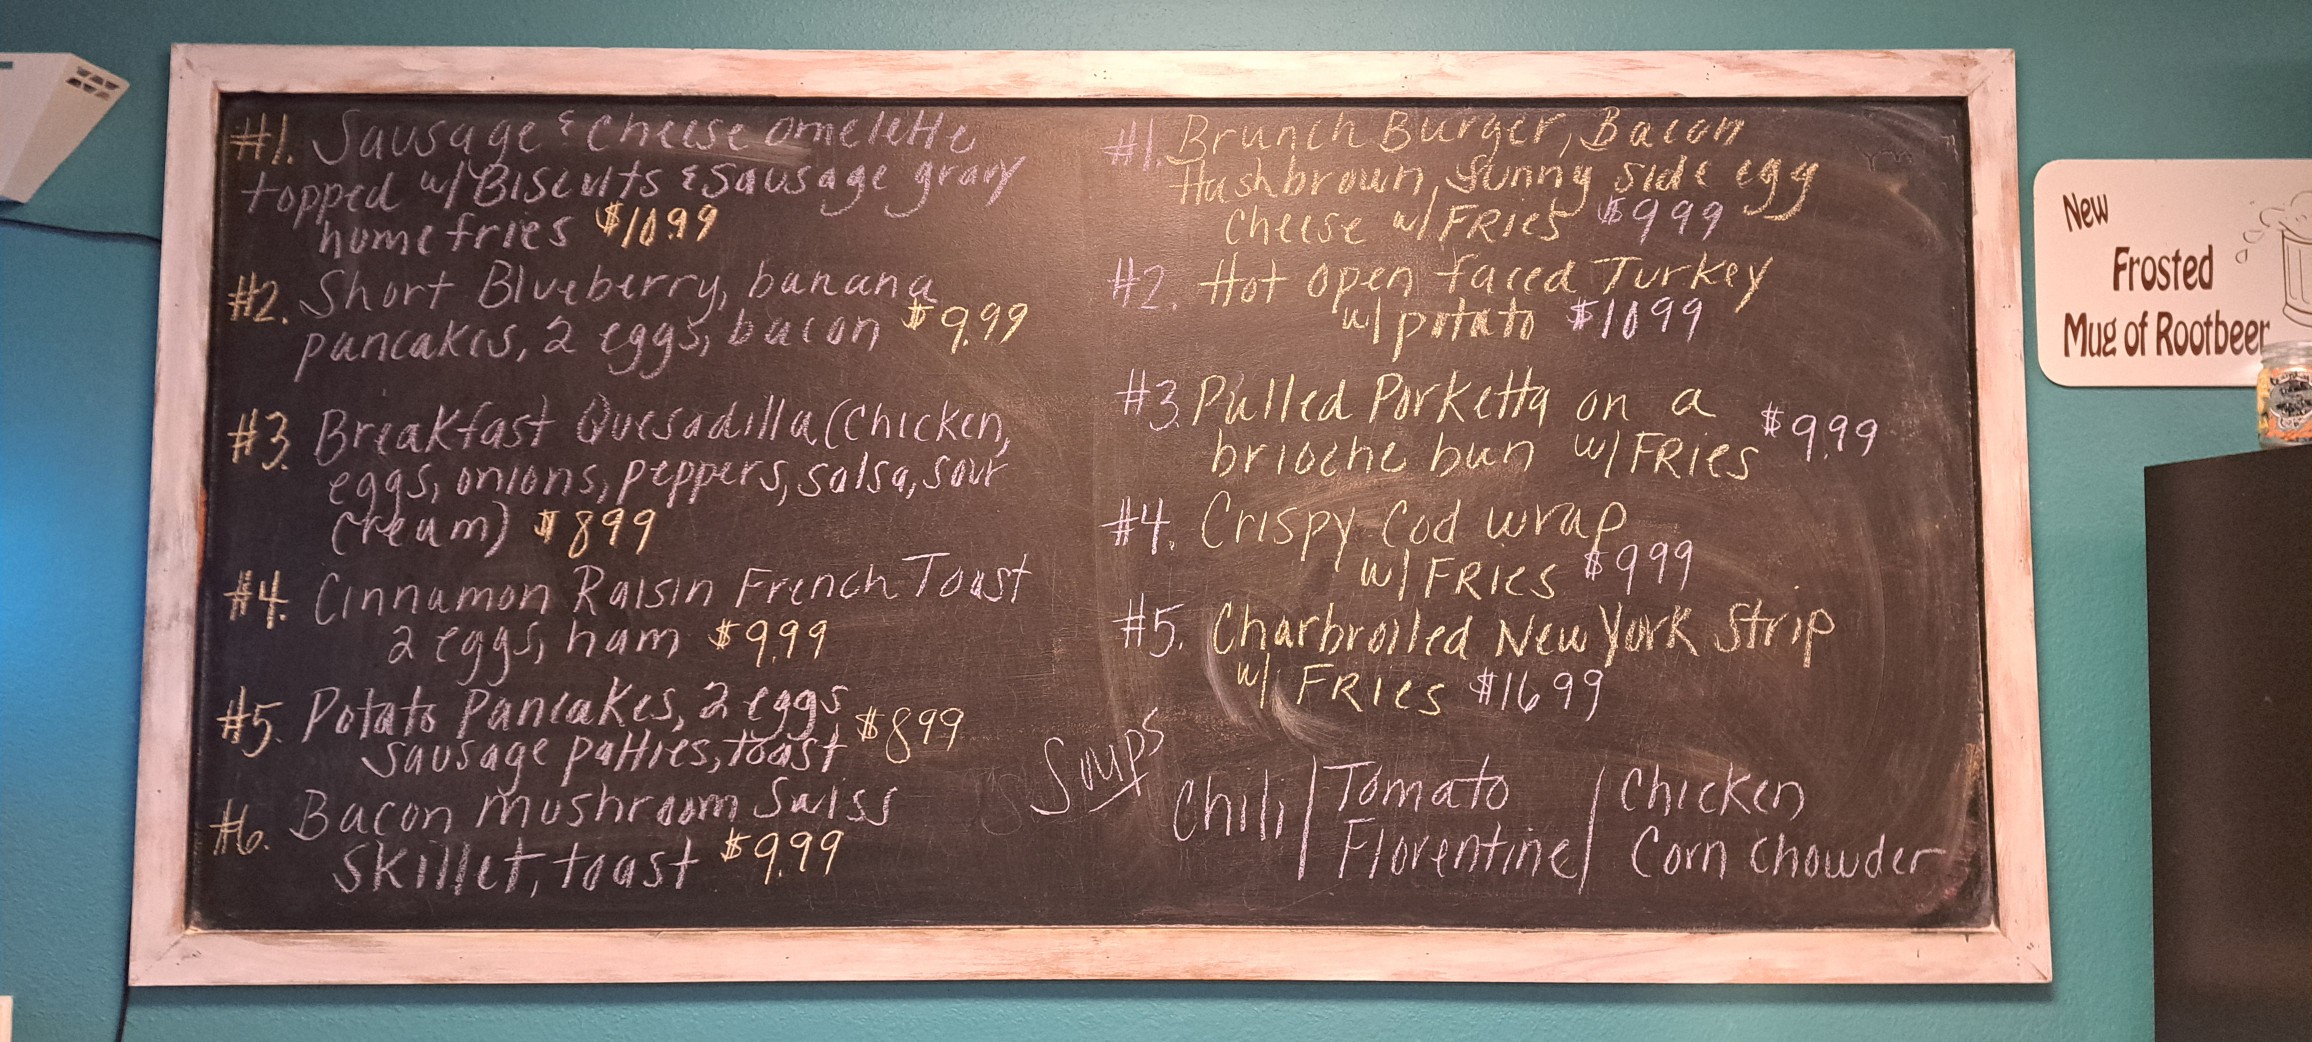 #1. Sausage & Cheese omelette
topped w/ Biscuits & Sausage gravy
home fries $10.99
#2. Short Blueberry, banana
pancakes, 2 eggs, bacon $9.99
#3. Breakfast Quesadilla (Chicken,
eggs, onions, peppers, salsa, sour
cream) $899
#4. Cinnamon Raisin French Toast
2 eggs, ham $9.99
#5. Potato Pancakes, 2 eggs
sausage patties, toast $899
#6. Bacon mushroom Swiss
skillet, toast $9.99
#1. Brunch Burger, Bacon
Hashbrown, Sunny side egg
cheese w/ FRIES $999
#2. Hot open faced Turkey
w/ potato $1099
#3. Pulled Porketta on a
brioche bun w/ FRIES $9.99
#4. Crispy Cod wrap
w/ FRIES $999
#5. Charbroiled New York Strip
w/ FRIES $1699
Soups
Chili | Tomato Florentine | Chicken Corn Chowder
New
Frosted
Mug of Rootbeer